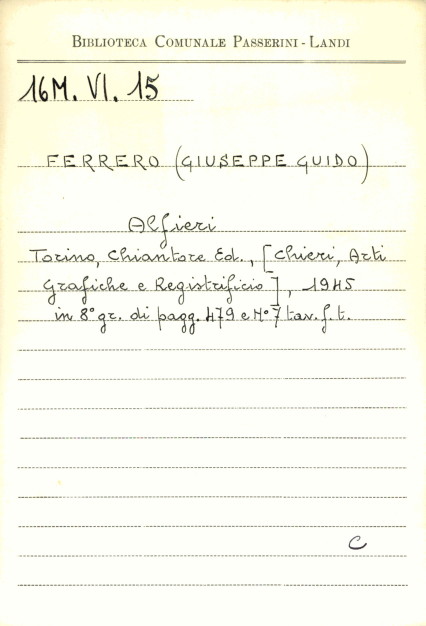 BIBLIOTECA COMUNALE PASSERINI - LANDI
16M. VI. 15
FERRERO (GIUSEPPE GUIDO)
Alfieri
Torino, Chiantore Ed., [Chieri, Arti
Grafiche e Registrificio], 1945
in 8° gr. di pagg. 479 e N° 7 tav. f. t.
C